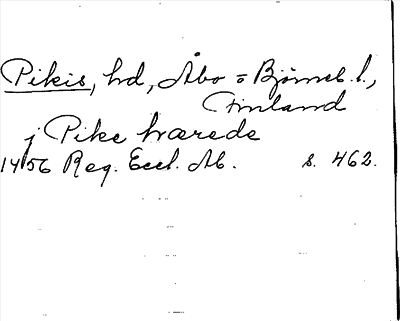 Pikis, hd, Åbo = Björneb. l.,
Finland
j Pike hærede
1456 Reg. Eccl. Ab. s. 462.